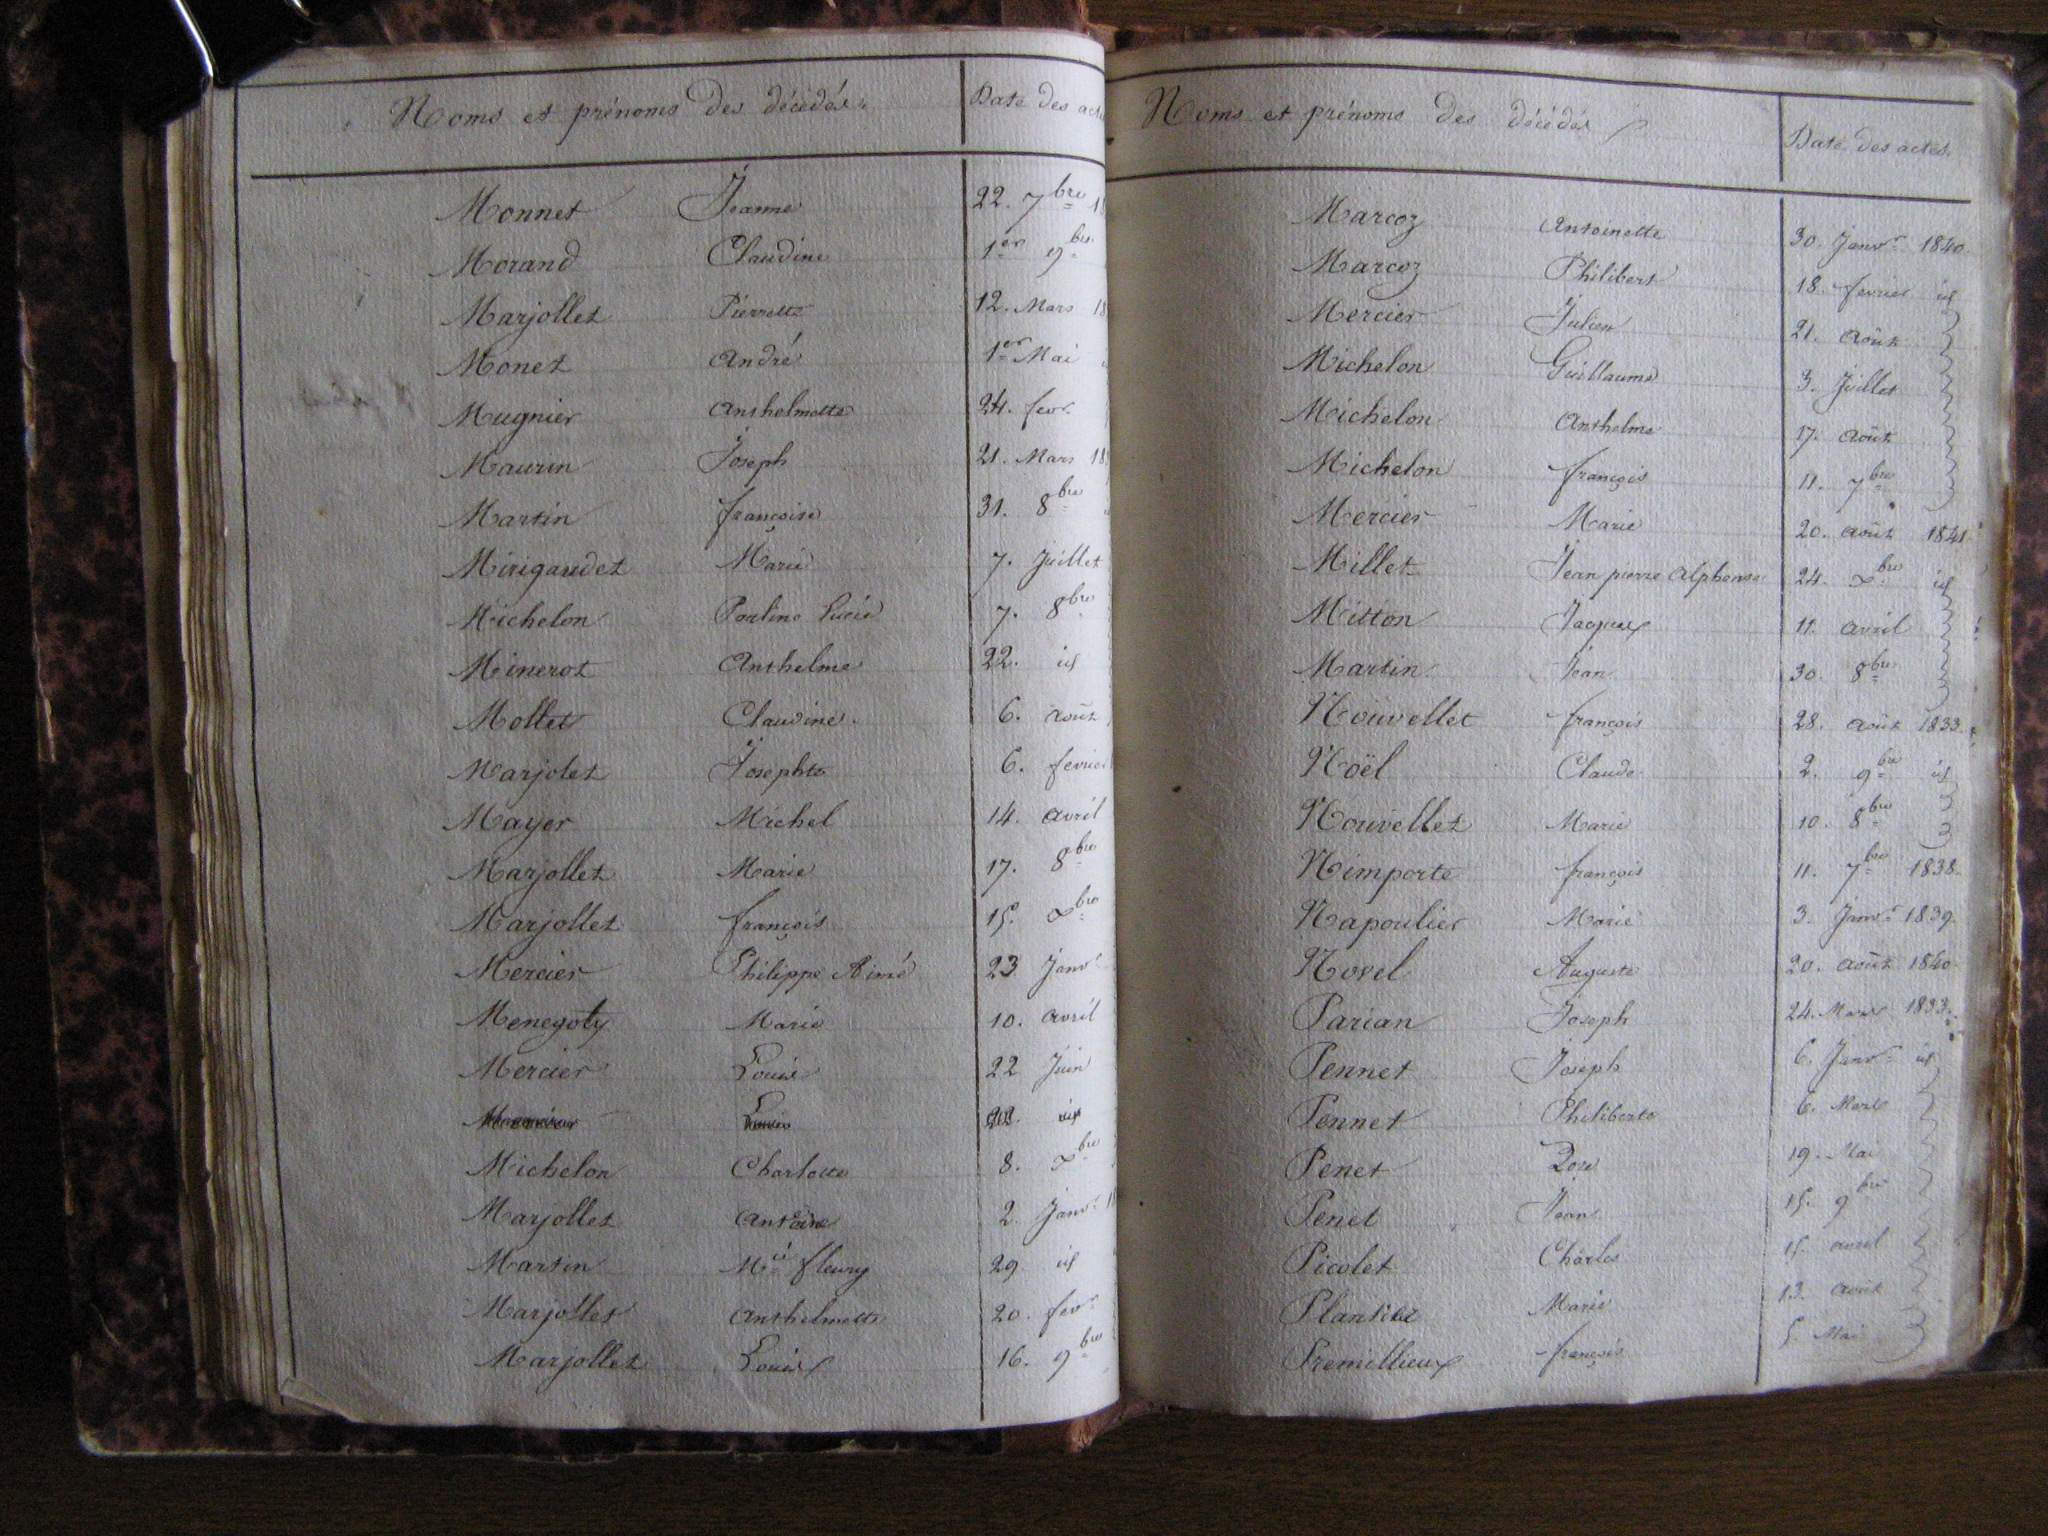 Noms et prénoms des décédés. Date des actes
Monnet Jeanne 22. 7bre 18
Morand Claudine 1er 9bre
Marjollet Pierrette 12. Mars 18
Monet André 1er Mai
Mugnier Anthelmette 24. fevr
Maurin Joseph 21. Mars 18
Martin françoise 31. 8bre
Mirigaudet Marie 7. Juillet
Michelon Pauline Lucie 7. 8bre
Minerot Anthelme 22. id
Mollet Claudine. 6. août
Marjolet Josephte 6. fevrier
Mayer Michel 14. avril
Marjollet Marie 17. 8bre
Marjollet françois 15. Xbre
Mercier Philippe Aimé 23 Janvr
Menegoty Marie 10. avril
Mercier Louis 22 Juin
Louis 22. id
Michelon Charlotte 8. Xbre
Marjollet Antoine 2. Janvr 18
Martin Mie fleury 29. id
Marjollet Anthelmette 20. fevr
Marjollet Louis 16. 9bre
Noms et prénoms des décédés Date des actes.
Marcoz Antoinette 30. Janvr 1840.
Marcoz Philibert 18. fevrier id
Mercier Julien 21. Août
Michelon Guillaume 3. Juillet
Michelon Anthelme 17. août
Michelon françois 11. 7bre
Mercier Marie 20. août 1841
Millet Jean pierre Alphonse 24. Xbre id
Mitton Jacques 11. avril
Martin Jean 30. 8bre
Nouvellet françois 28. août 1833.
Noël Claude 2. 9bre id
Nouvellet Marie 10. 8bre
Nimporte françois 11. 7bre 1838.
Napoulier Marie 3. Janvr 1839.
Novel Auguste 20. août 1840.
Parian Joseph 24. Mars 1833.
Pennet Joseph 6. Janvr id
Pennet Philiberte 6. Mars
Penet 19. Mai
Penet Jean 15. 9bre
Picolet Charles 15. avril
Plantier Marie 13. août
Premillieux françois 5. Mai